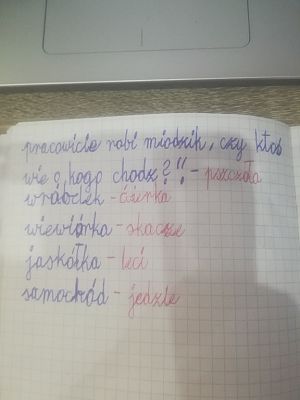 pracowicie robi miodzik, czy ktoś
wie o kogo chodzi?" - pszczoła
wróbelek - ćwierka
wiewiórka - skacze
jaskółka - leci
samochód - jedzie